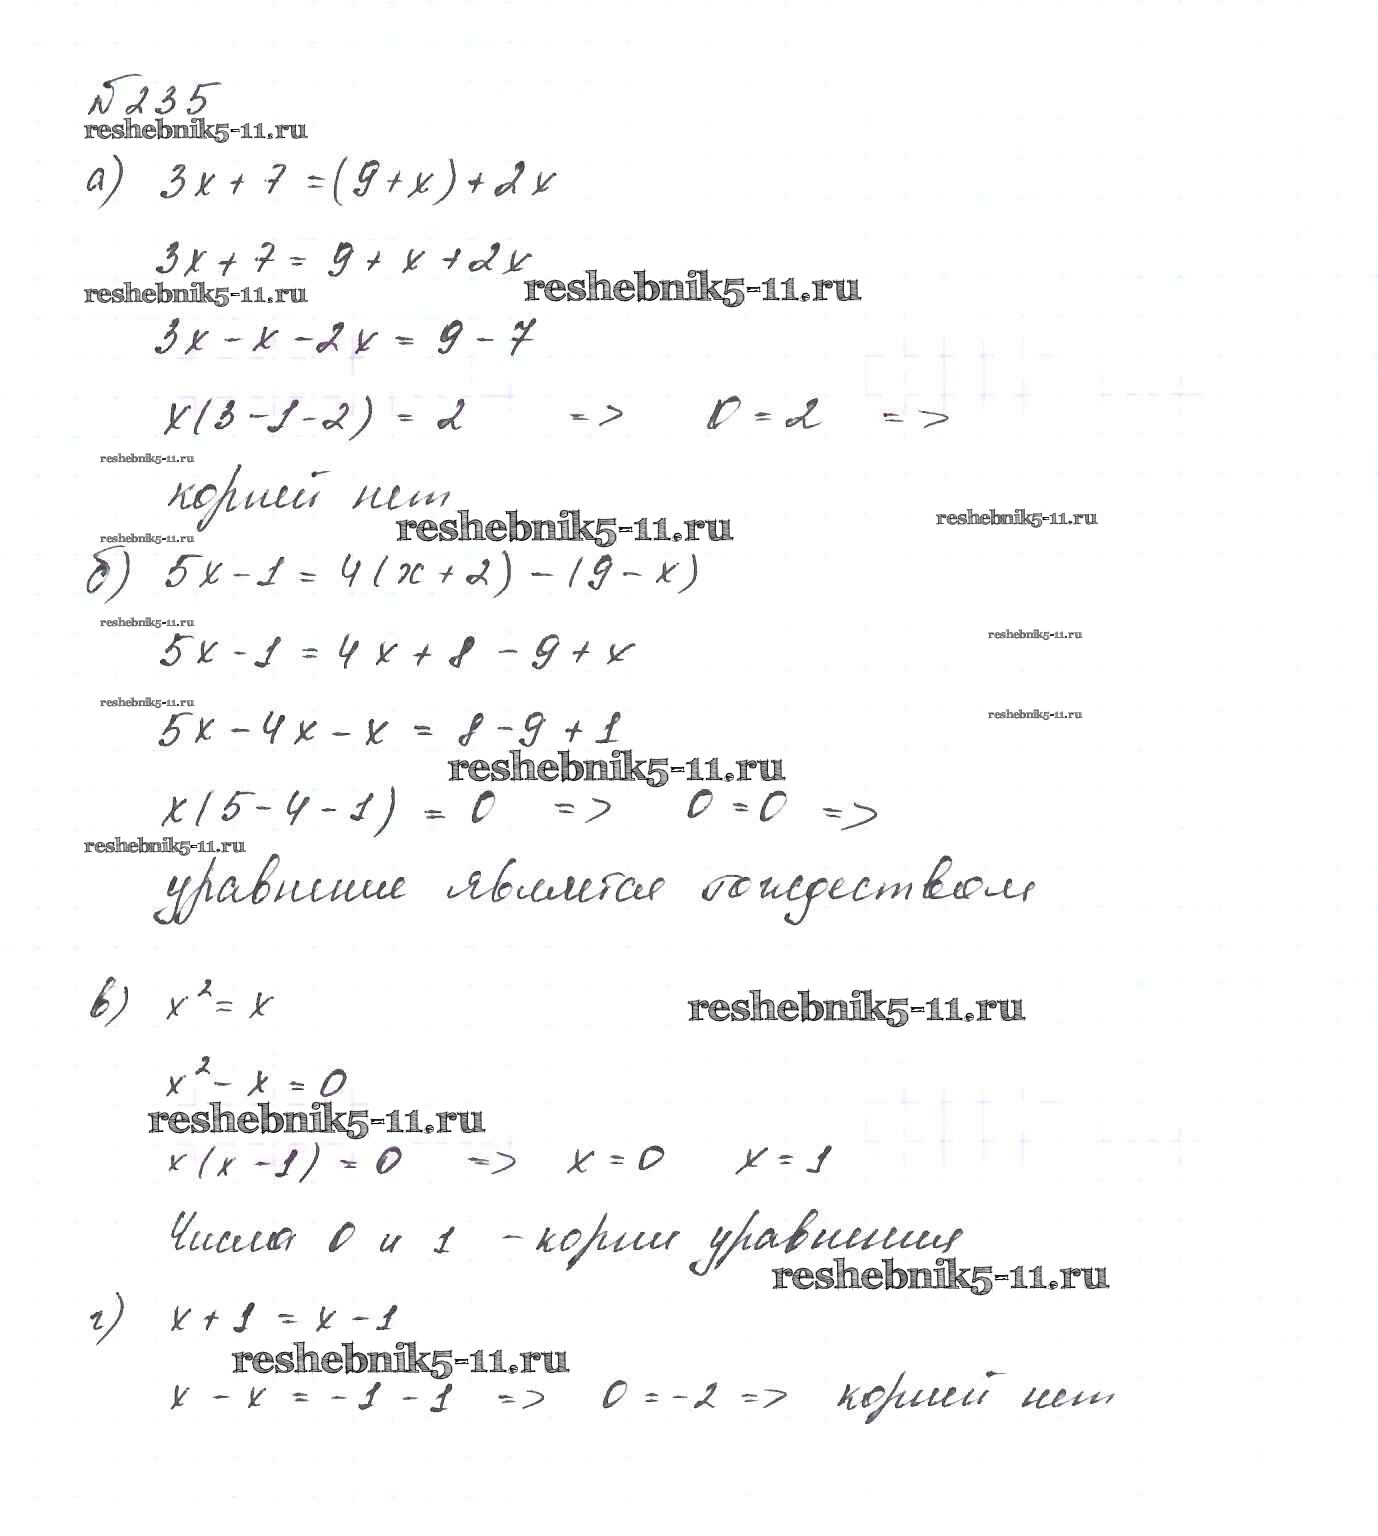 №235
reshebnik5-11.ru
а) 3x + 7 = (9 + x) + 2x
3x + 7 = 9 + x + 2x
reshebnik5-11.ru reshebnik5-11.ru
3x - x - 2x = 9 - 7
x(3 - 1 - 2) = 2 => 0 = 2 =>
reshebnik5-11.ru
корней нет
reshebnik5-11.ru reshebnik5-11.ru
reshebnik5-11.ru
б) 5x - 1 = 4(x + 2) - (9 - x)
reshebnik5-11.ru reshebnik5-11.ru
5x - 1 = 4x + 8 - 9 + x
reshebnik5-11.ru reshebnik5-11.ru
5x - 4x - x = 8 - 9 + 1
reshebnik5-11.ru
x(5 - 4 - 1) = 0 => 0 = 0 =>
reshebnik5-11.ru
уравнение является тождеством
в) x² = x reshebnik5-11.ru
x² - x = 0
reshebnik5-11.ru
x(x - 1) = 0 => x = 0 x = 1
Числа 0 и 1 - корни уравнения
reshebnik5-11.ru
г) x + 1 = x - 1
reshebnik5-11.ru
x - x = -1 - 1 => 0 = -2 => корней нет